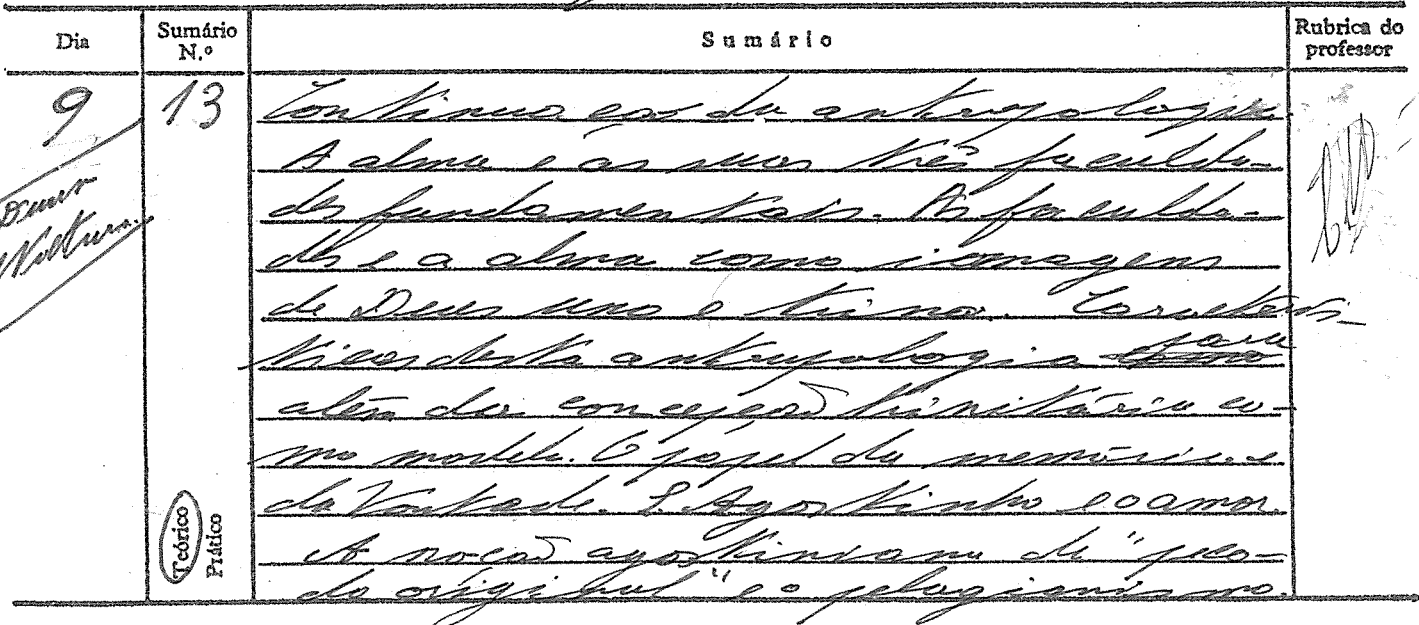 Dia
Sumário N.º
Sumário
Rubrica do professor
9
13
Diurna
Nocturna
Teórico
Prático
Continuação da antropologia.
A alma e as suas três faculda-
des fundamentais. As faculda-
des e a alma como imagens
de Deus uno e trino. Caracterís-
ticas desta antropologia para
além da concepção trinitária co-
mo modelo. O papel da memória e
da Vontade. S. Agostinho e o amor.
A noção agostiniana de "peca-
do original" e o pelagianismo.